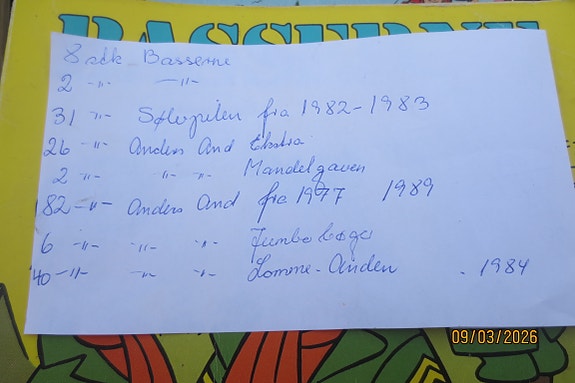 BASSERNE
8 stk Basserne
2 -"- -"-
31 -"- Sølvpilen fra 1982-1983
26 -"- Anders And Ekstra
2 -"- -"- -"- Mandelgaven
182 -"- Anders And fra 1977 1989
6 -"- -"- -"- Jumbo bøger
40 -"- -"- -"- Lomme-Anden - 1984
09/03/2026